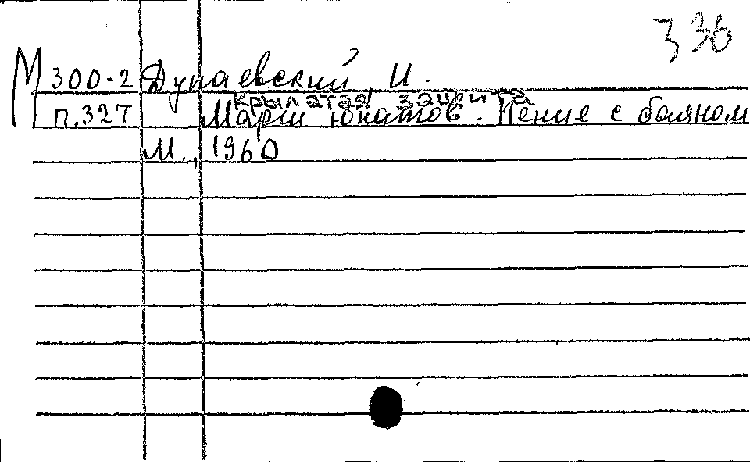 336
М 300-2 Дунаевский, И.
крылатая защита
п.327 Марш юнатов. Пение с баяном
М., 1960